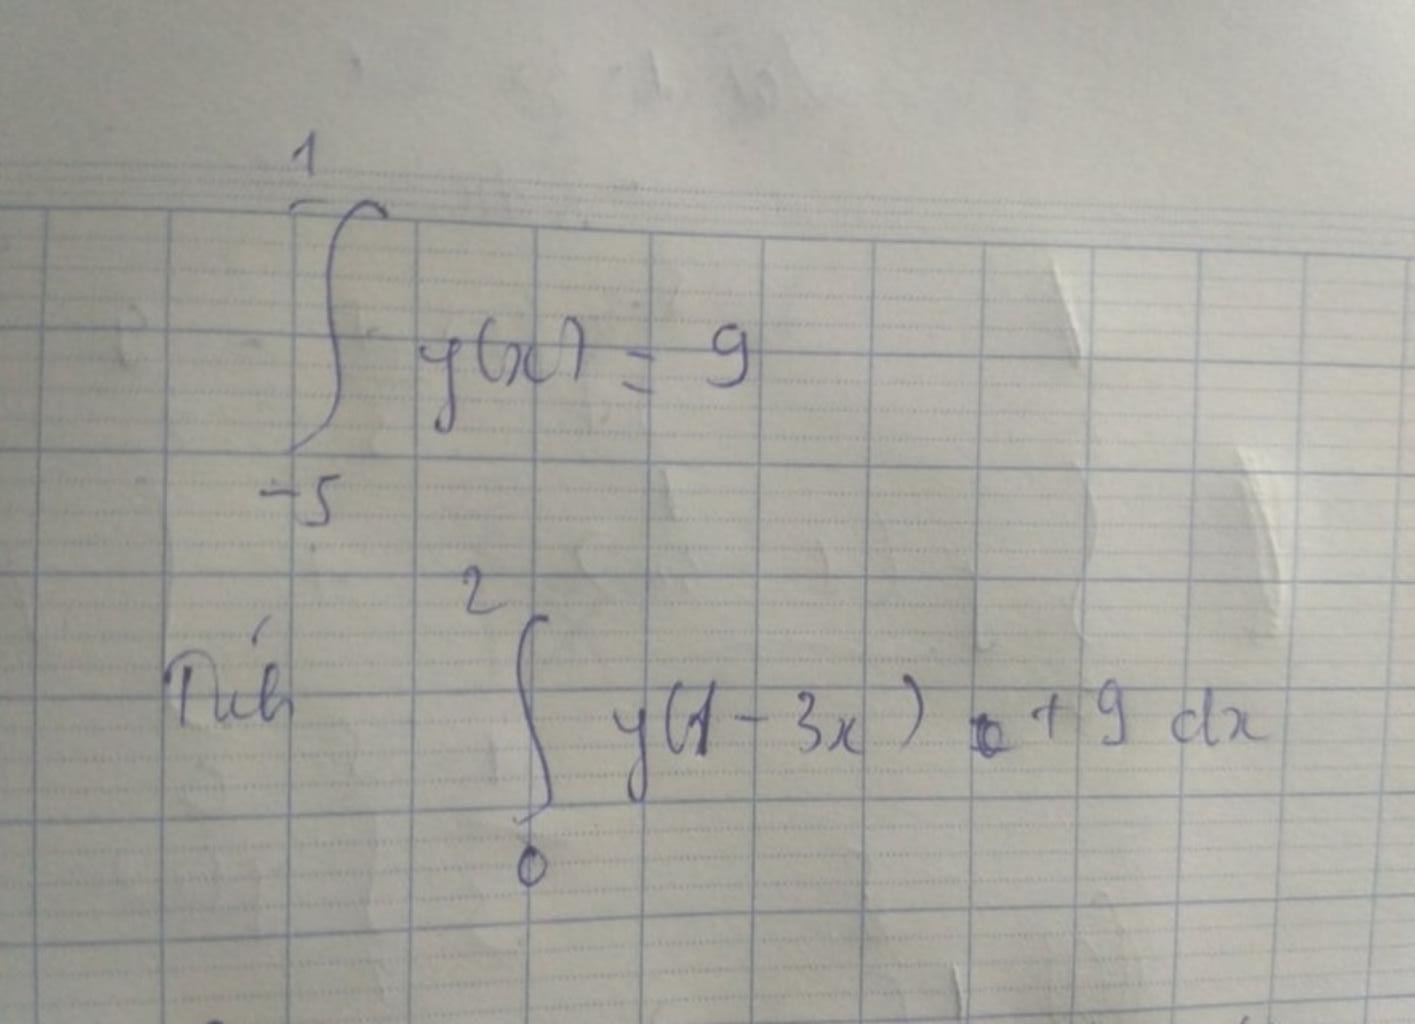 ∫_{-5}^{1} y(x) = 9
Tính ∫_{0}^{2} y(1 - 3x) + 9 dx